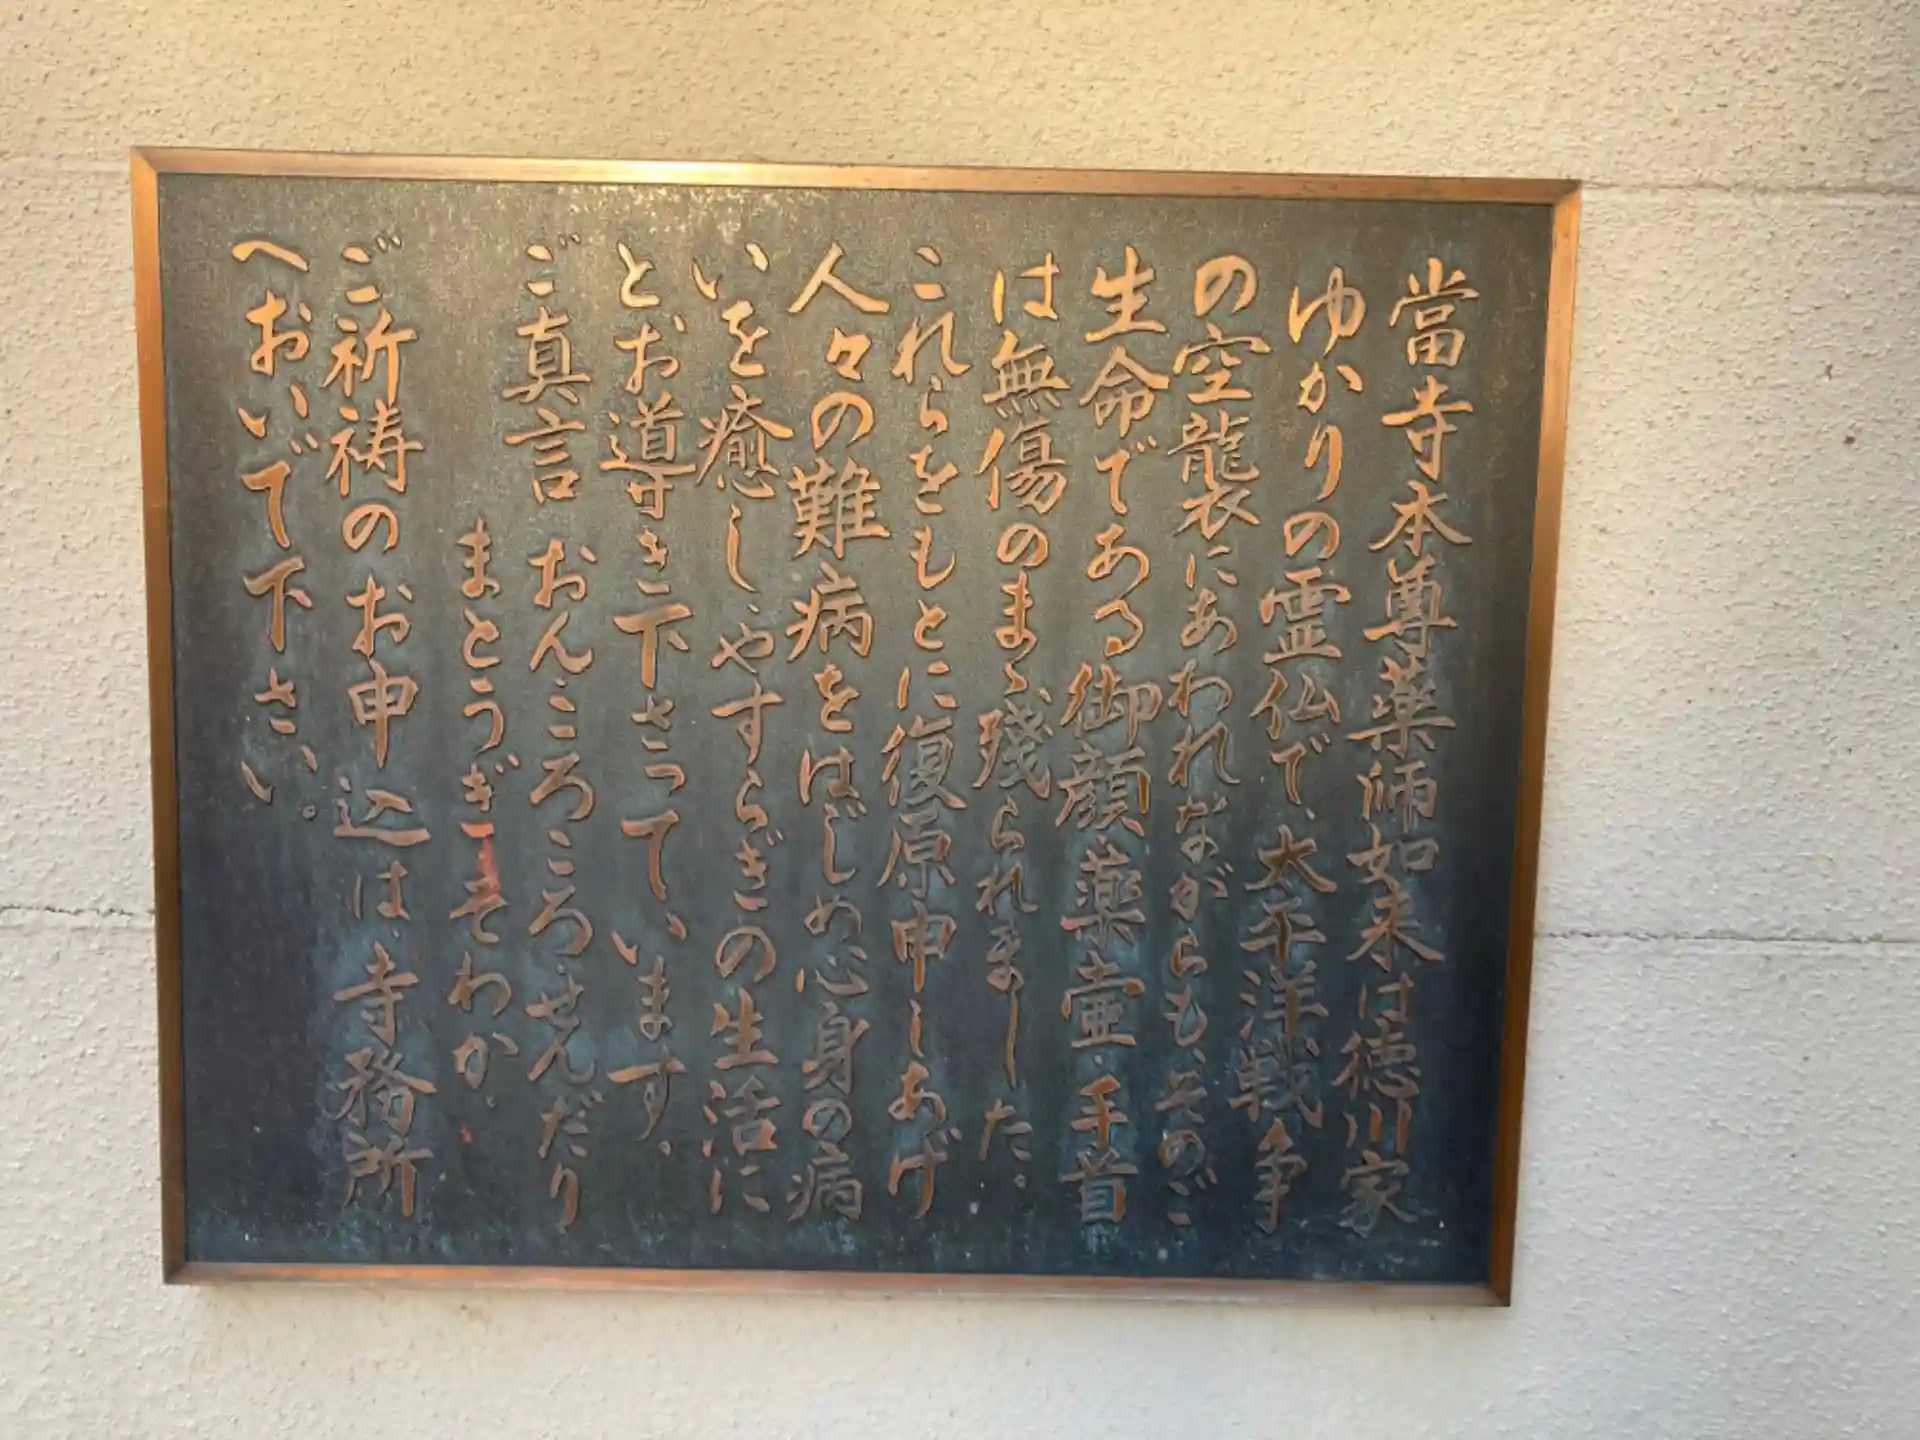 當寺本尊薬師如来は徳川家
ゆかりの霊仏で、大平洋戦争
の空襲にあわれながらも、そのご
生命である御顔・薬壷・手首
は無傷のまゝ残られました。
これらをもとに復原申しあげ
人々の難病をはじめ心身の病
いを癒し、やすらぎの生活に
とお導き下さっています。
ご真言 おんころころ・せんだり
まとうぎーそわか。
ご祈祷のお申込は、寺務所
へおいで下さい。